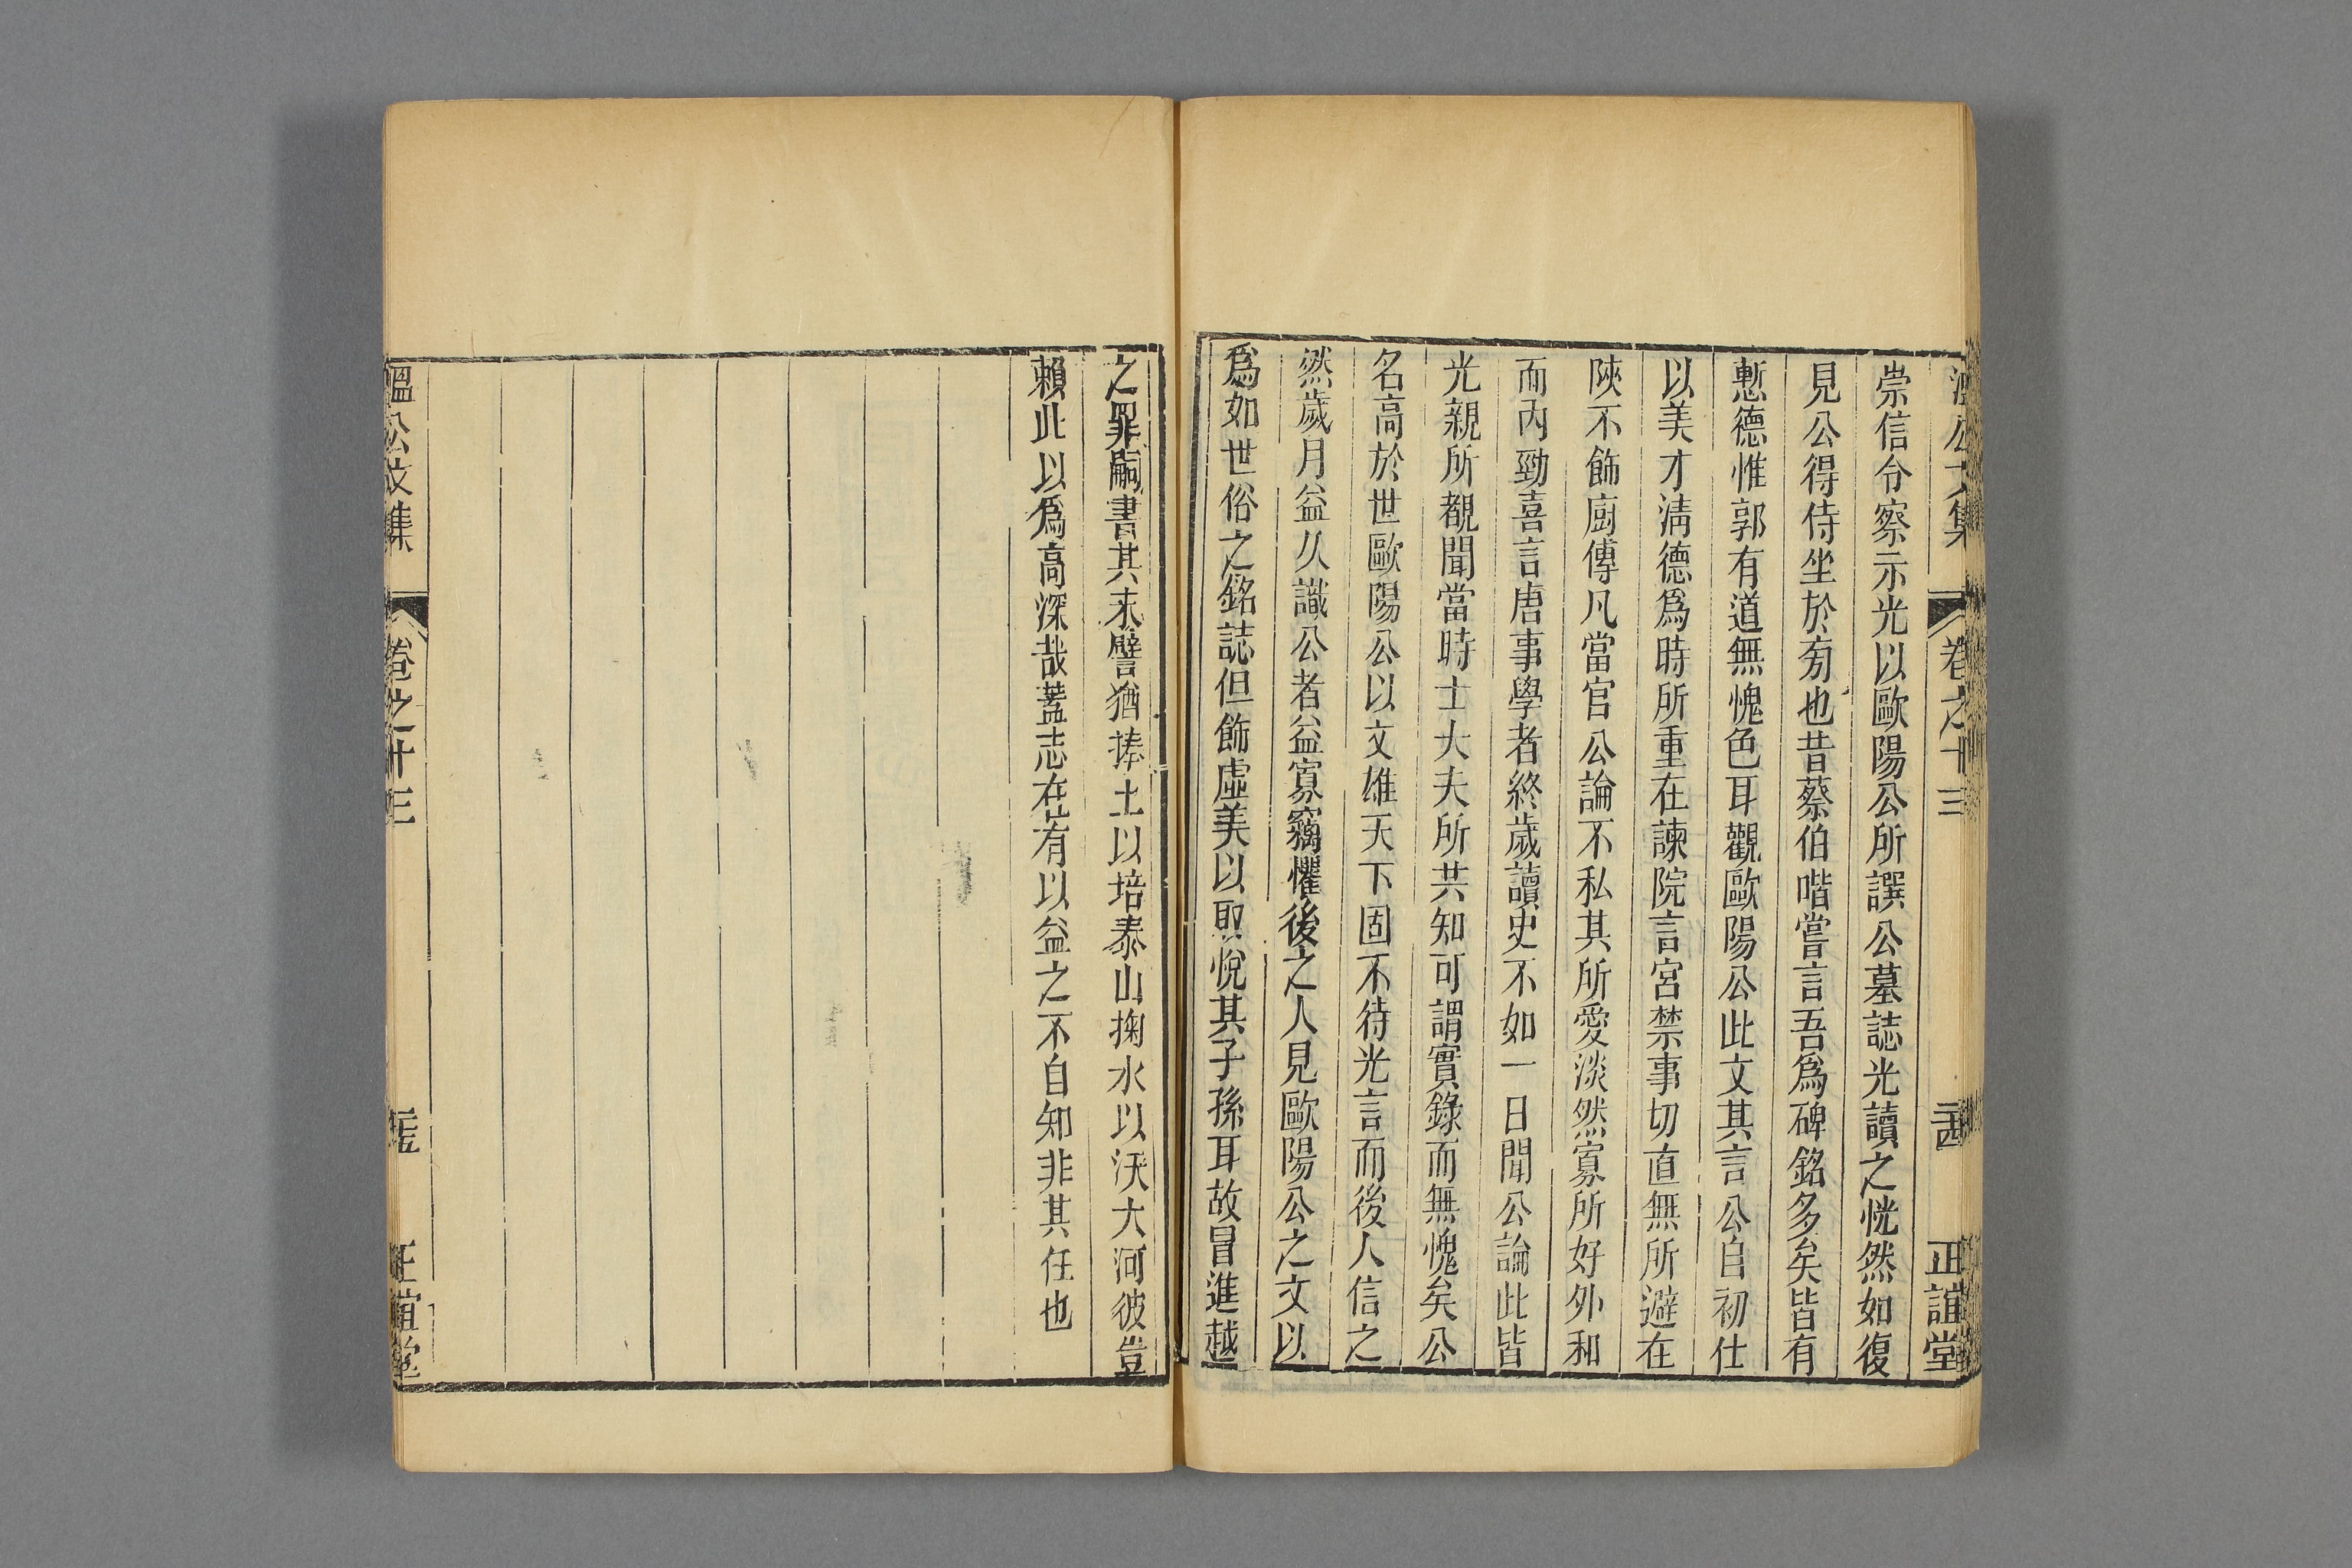 溫公文集 卷之十三 三西 正誼堂
崇信令察示光以歐陽公所譔公墓誌光讀之恍然如復
見公得侍坐於旁也昔蔡伯喈嘗言吾爲碑銘多矣皆有
慙德惟郭有道無愧色耳觀歐陽公此文其言公自初仕
以美才淸德爲時所重在諫院言宮禁事切直無所避在
陝不飾廚傳凡當官公論不私其所愛淡然寡所好外和
而內勁喜言唐事學者終歲讀史不如一日聞公論此皆
光親所覩聞當時士大夫所共知可謂實錄而無愧矣公
名高於世歐陽公以文雄天下固不待光言而後人信之
然歲月益久識公者益寡竊懼後之人見歐陽公之文以
爲如世俗之銘誌但飾虛美以取悅其子孫耳故冒進越
之罪嗣書其末譬猶捧土以培泰山掬水以沃大河彼豈
賴此以爲高深哉蓋志在有以益之不自知非其任也
溫公文集 卷之十三 正誼堂